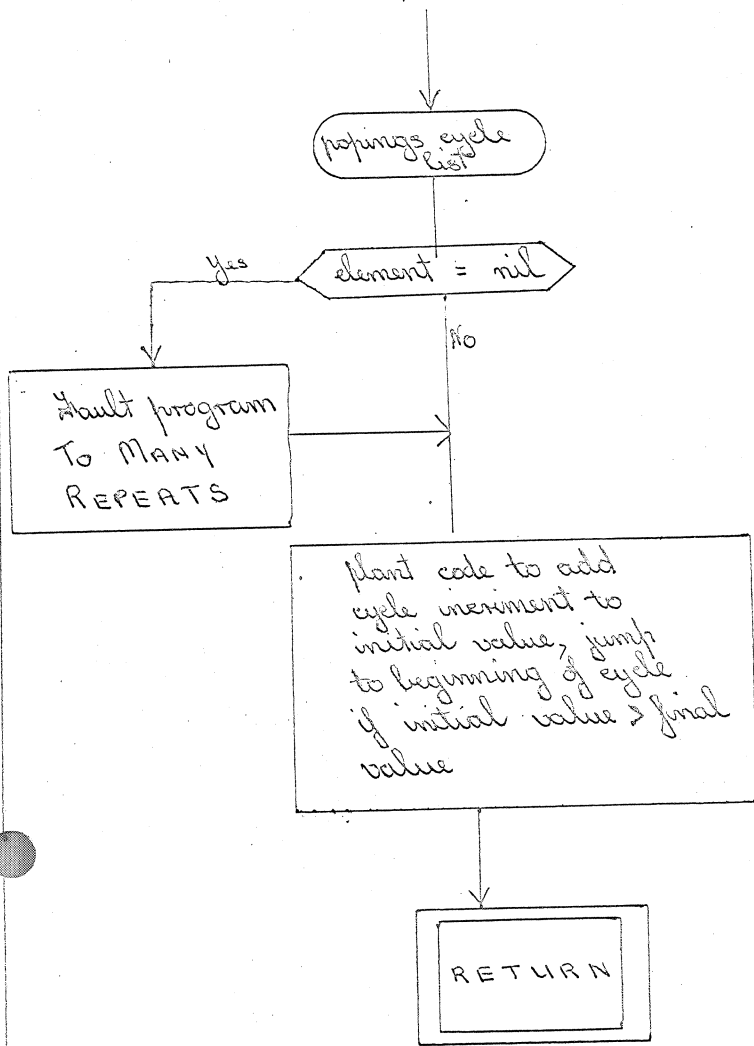 popings cycle
list
element = nil
Yes
No
Fault program
TO MANY
REPEATS
plant code to add
cycle incriment to
initial value, jump
to beginning of cycle
if initial value > final
value
RETURN